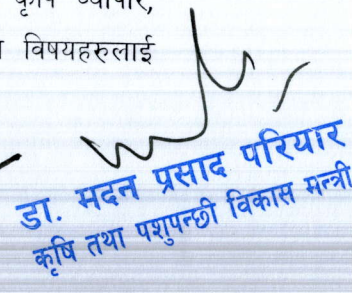 कृषि व्यापार,
विषयहरुलाई
डा. मदन प्रसाद परियार
कृषि तथा पशुपन्छी विकास मन्त्री